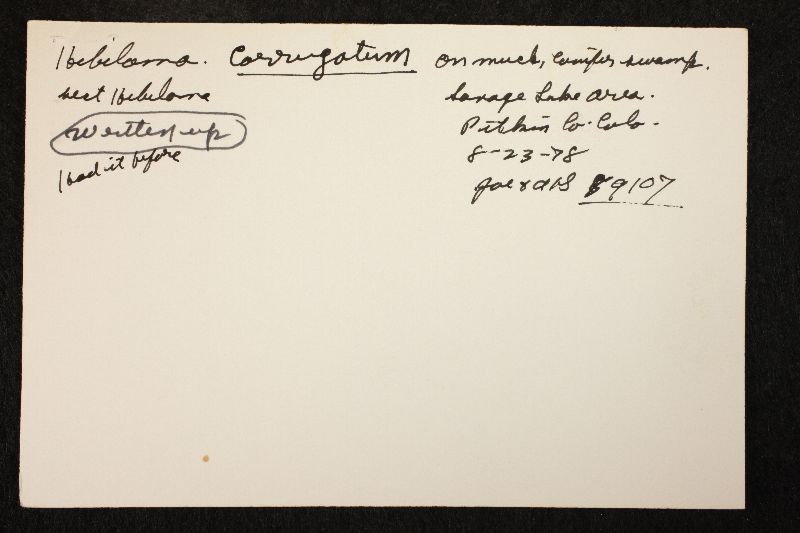 Hebeloma. Corrugatum
sect Hebeloma
Written up
Had it before
on muck, conifer swamp.
Savage Lake area.
Pitkin Co. Colo.
8-23-78
9107